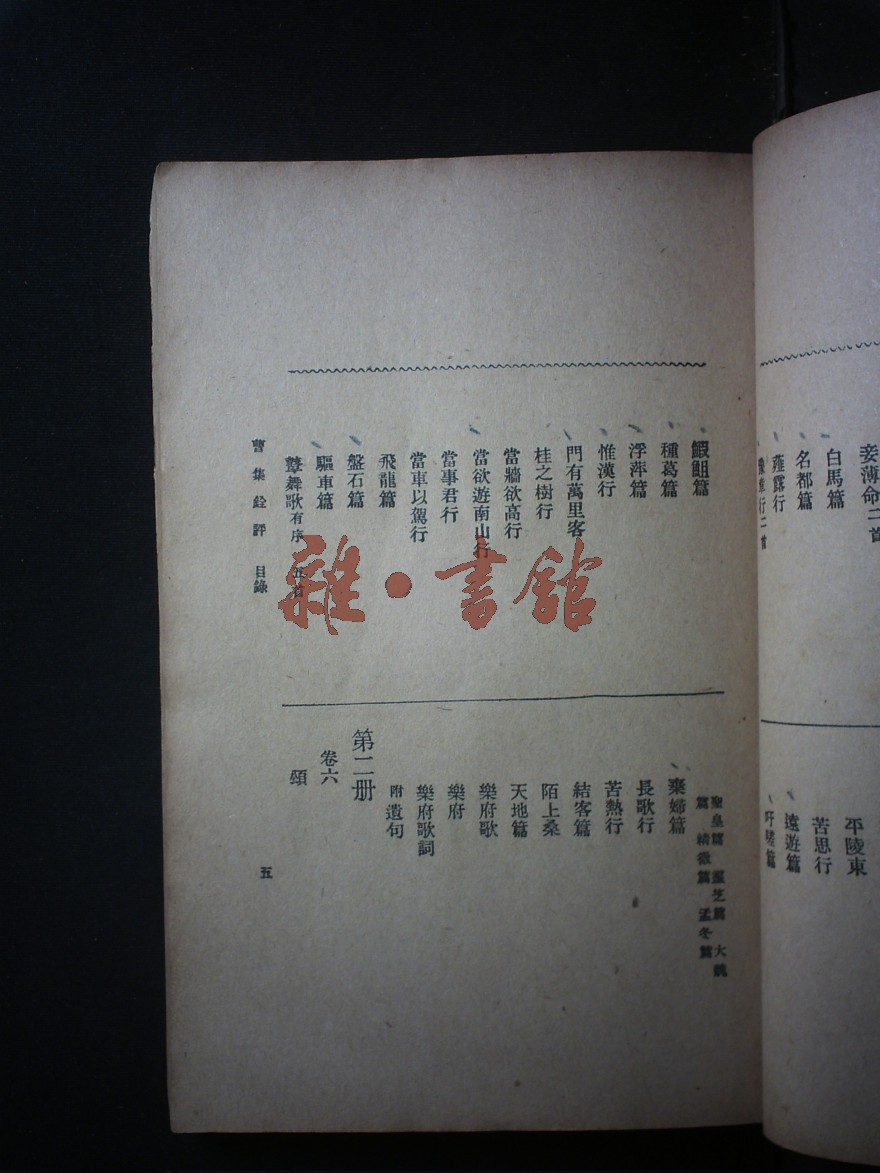 妾薄命二首
白馬篇
名都篇
薤露行
豫章行二首
平陵東
苦思行
遠遊篇
吁嗟篇
鰕䱇篇
種葛篇
浮萍篇
惟漢行
門有萬里客
桂之樹行
當牆欲高行
當欲遊南山行
當事君行
當車以駕行
飛龍篇
盤石篇
驅車篇
鼙舞歌有序 五首
聖皇篇 靈芝篇 大魏
篇 精微篇 孟冬篇
棄婦篇
長歌行
苦熱行
結客篇
陌上桑
天地篇
樂府歌
樂府
樂府歌詞
附遺句
第二册
卷六
頌
曹集銓評 目錄
五
雜·書館